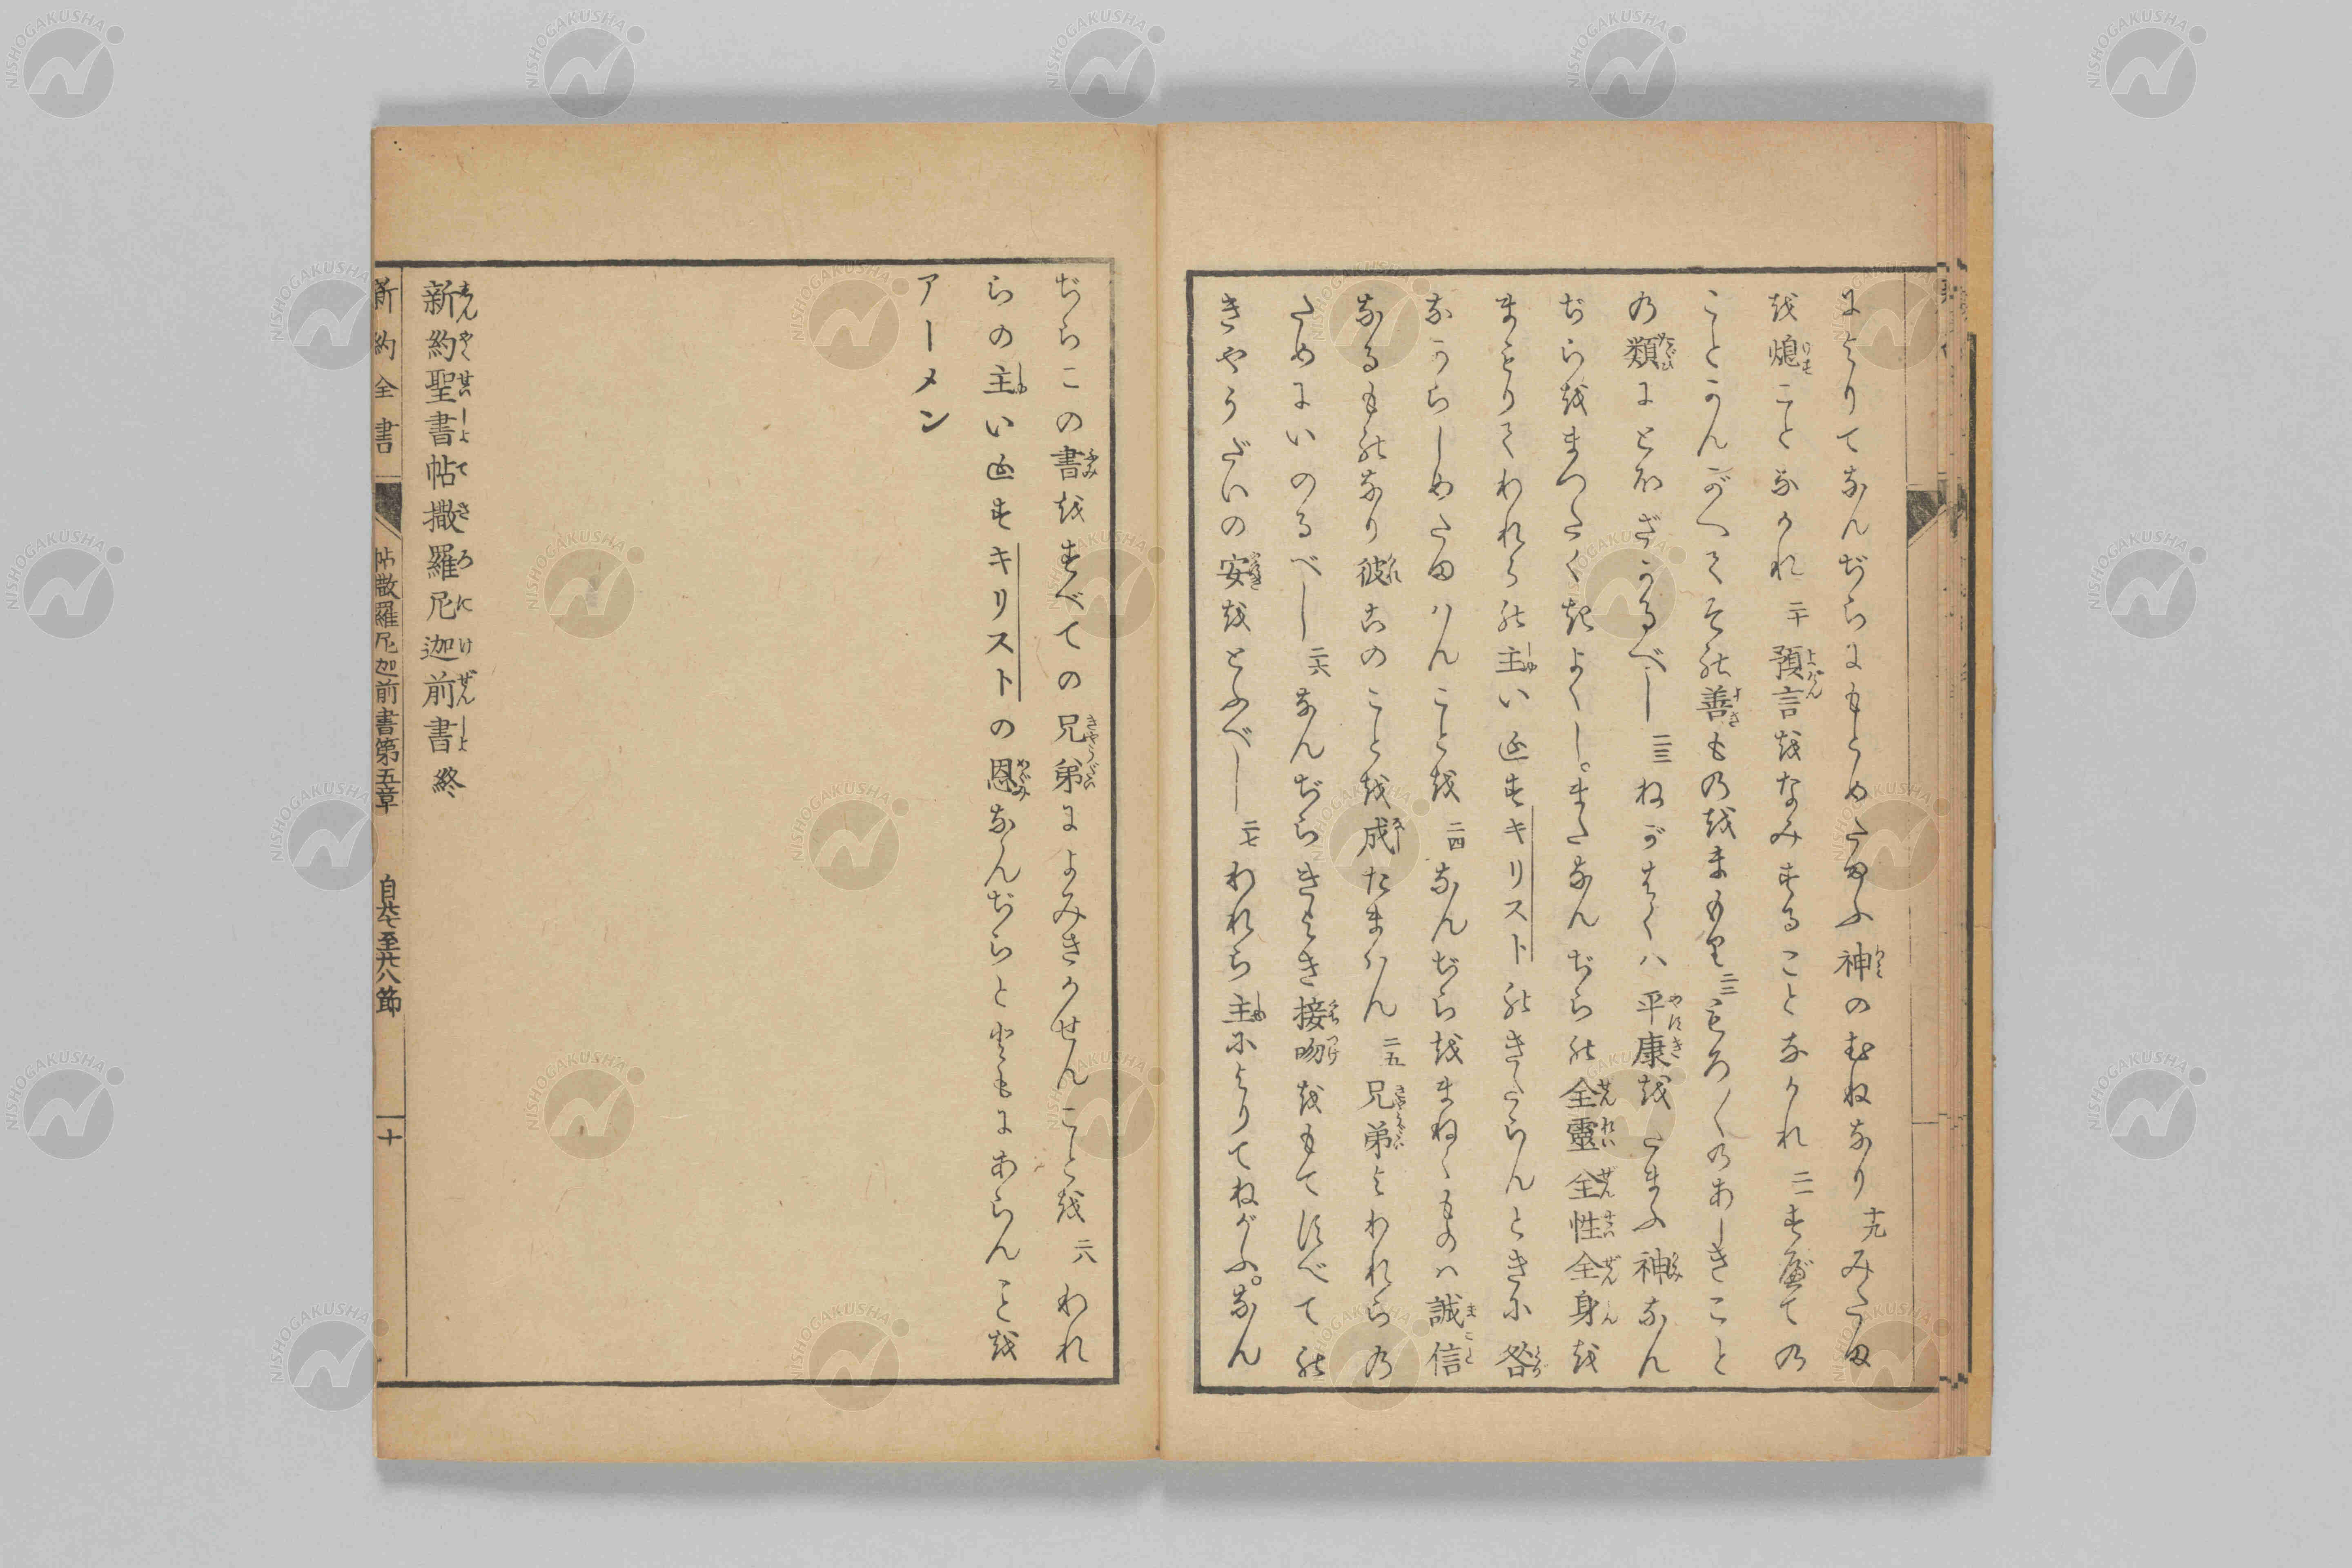 によりてなんぢらにもとめたまふ神のむねなり 十九 みたま
を熄ことなかれ 二十 預言をなみすることなかれ 二一 すべての
ことかんがへてその善ものをまもり 二二 もろ〳〵のあしきこと
の類にとほざかるべし 二三 ねがはくハ平康をたまふ神なん
ぢらをまつたくきよくし。またなんぢらの全靈全性全身を
まもりてわれらの主いエスキリストのきたらんときに咎
なからしめたまはんことを 二四 なんぢらをまねくものハ誠信
なるものなり彼このことを成たまはん 二五 兄弟よわれらの
ためにいのるべし 二六 なんぢらきよき接吻をもてすべての
きやうだいの安をとふべし 二七 われら主によりてねがふ。なん
ぢらこの書をすべての兄弟によみきかせんことを 二八 われ
らの主いエスキリストの恩なんぢらとともにあらんことを
アーメン
新約聖書帖撒羅尼迦前書 終
新約全書 帖撒羅尼迦前書第五章 自廿七至廿八節 十